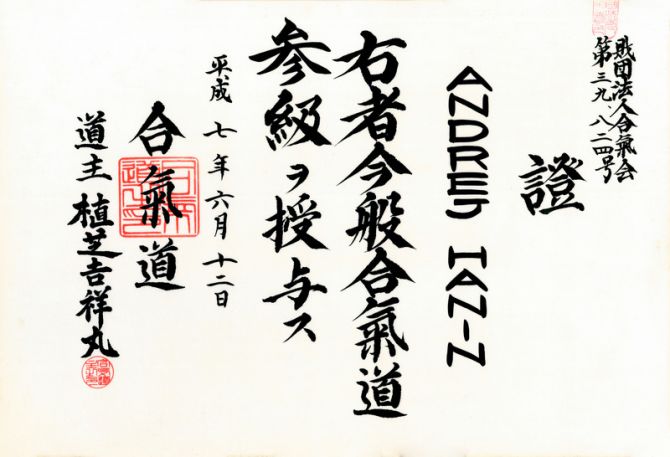 財団法人合氣会
第三九、八二四号
證
ANDREJ HANIN
右者今般合氣道
参級ヲ授与ス
平成七年六月十二日
合氣道
道主 植芝吉祥丸